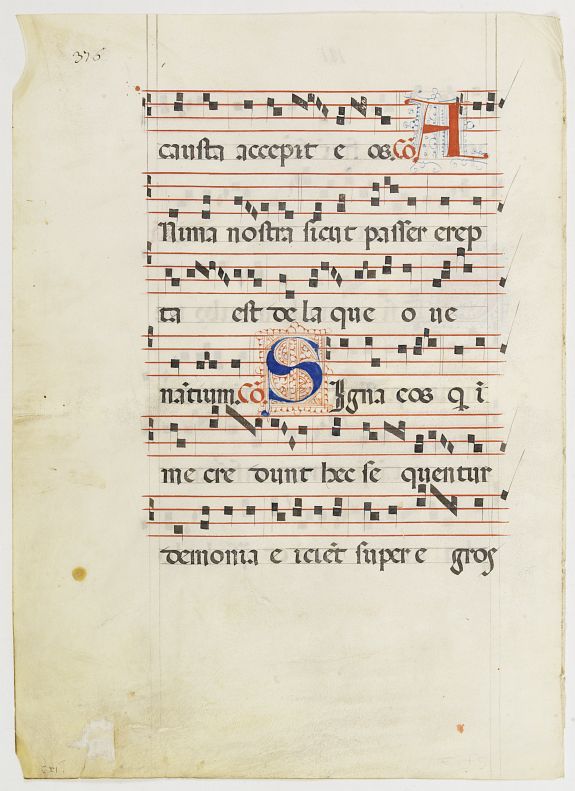 376
causta accepit e os. Cō A
Nima nostra sicut passer erep
ta est de la que o ve
nātium. Cō. S Igna eos q ī
me cre dunt hec se quentur
demonia e iciēt super e gros